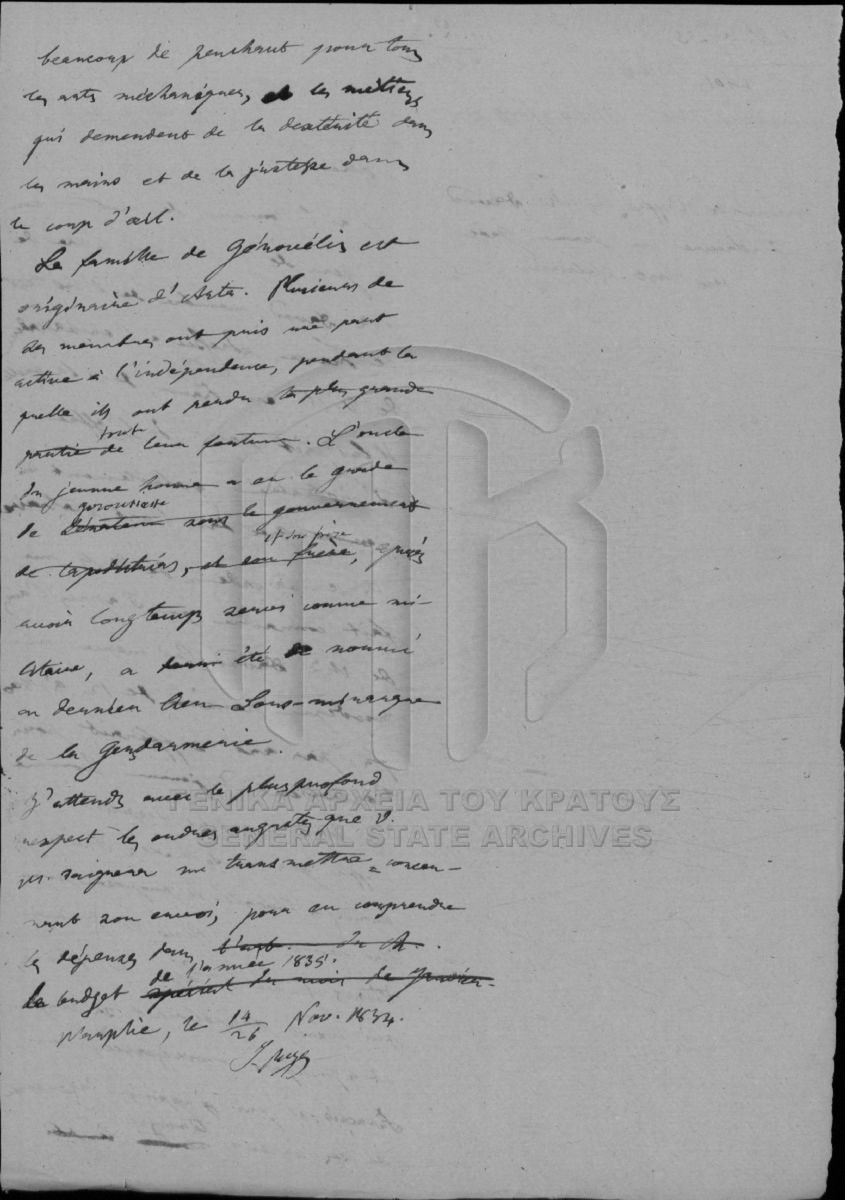 beaucoup de penchant pour tous
les arts méchaniques, et les métiers
qui demandent de la dextérité dans
les mains et de la justesse dans
le coup d'œil.
La famille de Génovélis est
originaire d'Arta. Plusieurs de
ses membres ont pris une part
active à l'indépendence, pendant la
quelle ils ont perdu la plus grande
partie de toute leur fortune. L'oncle
du jeune homme a eu le grade
de Sénateur sous le gouvernement
γερουσιαστε
de Capodistrias, et son frère, après
et son frère
avoir longtemps servi comme mi-
litaire, a été nommé
en dernier lieu Sous-mirarque
de la Gendarmerie.
J'attends avec le plus profond
respect les ordres augustes que V.
M. daignera me transmettre concer-
nant son envoi, pour en comprendre
les dépenses dans
le budget spécial du mois de Janvier.
de l'année 1835.
Nauplie, le 14/26 Nov. 1834.
ΓΕΝΙΚΑ ΑΡΧΕΙΑ ΤΟΥ ΚΡΑΤΟΥΣ
GENERAL STATE ARCHIVES